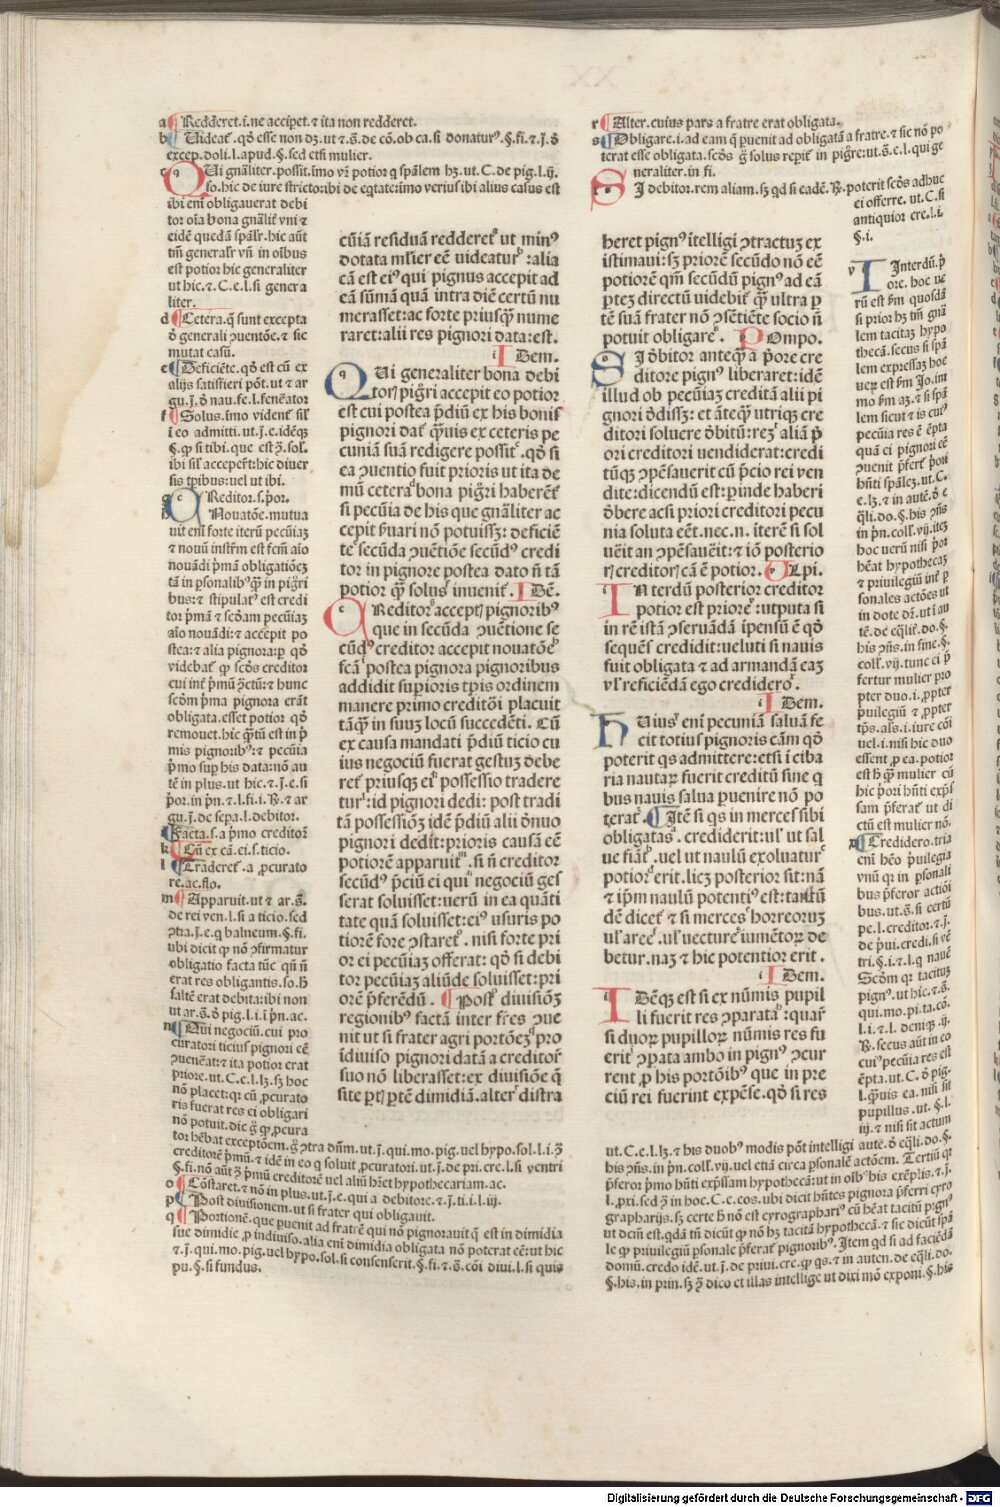 a Redderet.i.ne accip̄et.⁊ ita non redderet.
b Uideat̉. qđ esse non dꝫ.ut ⁊.s̄.de cō.ob ca.si donatur⁹.§.fi.⁊.j̄.ð
excep.doli.l.apud.§.sed etsi mulier.
c QUi gñaliter.possit.imo vr̄ potior q̄ sp̄alem hꝫ.ut.C.de pig.l.ij.
so.hic de iure stricto:ibi de eq̄tate:imo verius ibi alius casus est
ibi eni obligauerat debi
tor oīa bona gñalit̉ vni ⁊
eidē quedā sp̄alr̄.hic aūt
tm̄ generalr̄ vñ in oībus
est potior hic generaliter
ut hic.⁊.C.e.l.si genera
liter.
d Cetera.q̄ sunt excepta
ð generali ɔuentōe.⁊ sic
mutat casū.
e Deficiēte.qđ est cū ex
alijs satisfieri pōt.ut ⁊ ar
gu.j̄.ð nau.fe.l.fenerator
f Solus.imo vident̉ sil̄
ī eo admitti.ut.j̄.e.idēq̨
§.ꝙ si tibi.que est ꝯ̄.sol̄.
ibi sil̄ acceper̄t:hic diuer
sis tp̄ibus:uel ut ibi.
g CReditor.s.p̄or.
h Nouatōe.mutua
uit eni forte iterū pecūiaꝫ
⁊ nouū instr̄m est fcm̄ aīo
nouādi p̄mā obligatiōeꝫ
tā in psonalib⁹ꝙ̄ in pig̉ri
bus:⁊ stipulat⁹ est credi
tor p̄mā ⁊ scđam pecūiaꝫ
aīo nouādi:⁊ accepit po
stea:⁊ alia pignora:ꝑ qđ
videbat̉ ꝙ scđs creditor
cui int̉ p̄mū ꝯ̄ctū:⁊ hunc
scđm p̄ma pignora erāt
obligata.esset potior qđ
remouet.hic q̄tū est in p̄
mis pignorib⁹:⁊ pecūia
p̄mo sup his data:nō au
tē in plus.ut hic.⁊.j̄.e.si
p̄or.in p̄n.⁊.l.fi.i.R̄.⁊ ar
gu.j̄.de sepa.l.debitor.
i Facta.s.a p̄mo creditor̄
k Cū ex cā.ei.s.ticio.
l Traderet̉.a ꝓcurato
re.ac.flo.
m Apparuit.ut ⁊ ar.s̄.
de rei ven.l.si a ticio.sed
ɔtra.j̄.e.q balneum.§.fi.
ubi dicit ꝙ nō ɔfirmatur
obligatio facta tūc qn̄ n̄
erat res obligantis.so.h̄
faltē erat debita:ibi non
ut ar.s̄.ð pig.l.i.i p̄n.ac.
n Qui negociū.cui pro
curatori ticius pignori eē
ɔueneāt:⁊ ita potior erat
priore.ut.C.e.l.lꝫ.sꝫ hoc
nō placet:qꝛ cū ꝓcurato
ris fuerat res ei obligari
nō potuit.dic g̊ ꝙ ꝓcura
tor hēbat exceptōem.g̊ ɔtra dn̄m.ut.j̄.qui.mo.pig.uel hypo.sol.l.i.ꝯ̄
creditorē p̄mū.⁊ idē in eo q soluit ꝓcuratori.ut.j̄.de pri.cre.l.si ventri
§.fi.nō aūt ꝯ̄ p̄mū creditorē uel aliū hn̄et hypothecariam.ac.
o Cōstaret.⁊ nō in plus.ut.j̄.e.qui a debitore.⁊.j̄.ti.i.l.iij.
p Post diuisionem.ut si frater qui obligauit.
q Portionē.que ꝓuenit ad fratrē qui nō pignorauit q̄ est in dimidia
sue dimidie ꝓ indiuiso.alia eni dimidia obligata nō poterat eē:ut hic
⁊.j̄.qui.mo.pig.uel hypo.sol.si consenserit.§.fi.⁊.s̄.cōi diui.l.si quis
pu.§.si fundus.
cūiā residuā redderet̉ ut min⁹
dotata ml̉ier eē uideatur:alia
cā est ei⁹ qui pignus accepit ad
eā sūmā quā intra diē certū nu
merasset:ac forte priusꝙ̄ nume
raret:alii res pignori data:est.
i IDem.
QUi generaliter bona debi
toris pig̉ri accepit eo potior
est cui postea p̄diū ex his bonis
pignori dat̉ ꝙ̄uis ex ceteris pe
cuniā suā redigere possit̉.qđ si
ea ɔuentio fuit prioris ut ita de
mū cetera bona pig̉ri haberēt̉
si pecūia de his que gñaliter ac
cepit p̄uari nō potuissꝫ:deficiē
te secūda ɔuētiōe secūd⁹ credi
tor in pignore postea dato n̄ tā
potior ꝙ̄ solus inuenit̉. IDē.
CReditor acceptis pignorib⁹
que in secūda ɔuētione se
cūd⁹ creditor accepit nouatōe
fcā postea pignora pignoribus
addidit supioris tp̄is ordinem
manere primo creditōi placuit
tāꝙ̄ in suuꝫ locū succedēti. Cū
ex causa mandati p̄diū ticio cu
ius negociū fuerat gestuꝫ debe
ret̉ priusꝙ̄ ei possessio tradere
tur:id pignori dedi:post tradi
tā possessiōꝫ idē p̄diū alii ðnuo
pignori dedit:prioris causā eē
potiorē apparuit.si n̄ creditor
secūd⁹ p̄ciū ei qui negociū ges
serat soluisset:uerū in ea quāti
tate quā soluisset:ei⁹ usuris po
tiorē fore ɔstaret̉.nisi forte pri
or ei pecūiaꝫ offerat:qđ si debi
tor pecūiaꝫ aliūde soluisset:pri
orē p̄ferēdū. Post diuisiōꝫ
regionib⁹ factā inter fr̄es ɔue
nit ut si frater agri portōeꝫ pro
idiuiso pignori datā a creditor̄
suo nō liberasset:ex diuisiōe q̄
site ptis ptē dimidiā.alter distra
r Alter.cuius pars a fratre erat obligata.
s Obligare.i.ad eam q̄ puenit ad obligatā a fratre.⁊ sic nō po
terat esse obligata.scđs g̊ solus repit̉ in pig̉re:ut.s̄.e.l.qui ge
neraliter.in fi.
t SI debitor.rem aliam.sꝫ qđ si eadē.R̄.poterit scđs adhuc
ei offerre.ut.C.si
antiquior cre.l.i.
§.i.
heret pign⁹ ītelligi ɔtractuꝫ ex
istimaui:sꝫ priorē secūdo nō eē
potiorē qm̄ secūdū pign⁹ ad eā
pteꝫ directū uidebit̉ ꝙ̄ ultra p
tē suā frater nō ɔsētiēte socio n̄
potuit obligare. POmpo.
SI ðbitor anteꝙ̄ a p̄ore cre
ditore pign⁹ liberaret:idē
illud ob pecūiaꝫ creditā alii pi
gnori ðdissꝫ:et āteꝙ̄ utriq̨ cre
ditori soluere ðbitū:reꝫ aliā p̄
ori creditori uendiderat:credi
tūq̨ ɔpēsauerit cū p̄cio rei ven
dite:dicendū est:pinde haberi
ðbere acsi priori creditori pecu
nia soluta eēt.nec.n.iterē si sol
uēit an ɔpēsauēit:⁊ iō posterio
ris creditoris cā ē potior. ULpi.
IN terdū posterior creditor
potior est priore:utputa si
in rē istā ɔseruādā ipēsū ē qđ
sequēs credidit:ueluti si nauis
fuit obligata ⁊ ad armandā eaꝫ
vl̉ reficiēdā ego credidero.
i IDem.
HUius eni pecuniā saluā fe
cit totius pignoris cām qđ
poterit qs admittere:etsi ī ciba
ria nautaꝝ fuerit creditū sine q
bus nauis salua puenire nō po
terat. Itē si qs in merces sibi
obligatas.crediderit:ul̉ ut sal
ue fiāt̉.uel ut naulū exoluatur
potior erit.licꝫ posterior sit:nā
⁊ ip̄m naulū potenti⁹ est:tantū
dē dicet̉ ⁊ si merces horreoruꝫ
ul̉ aree.ul̉ uecture iumētoꝝ de
betur.naꝫ ⁊ hic potentior erit.
i IDem.
IDēꝙ est si ex nūmis pupil
li fuerit res ɔparata:quar̄
si duoꝝ pupilloꝝ nūmis res fu
erit ɔpata ambo in pign⁹ ɔcur
rent ꝓ his portōib⁹ que in pre
ciū rei fuerint expēse.qđ si res
v INterdū.p̄
ore.hoc ue
rū est fm̄ quosdā
si prior hꝫ tm̄ gñā
lem tacitaꝫ hypo
thecā.secus si spā
lem expressaꝫ hoc
ueꝝ est fm̄ Jo.im
mo fm̄ aꝫ.⁊ si spā
lem sicut ⁊ is cui⁹
pecūia res ē ēpta
quā ei pignori eē
ɔuenit p̄fert̉ p̄ori
hn̄ti spāleꝫ.ut.C.
e.lꝫ.⁊ in autē.ð e
q̄li.do.§.his ɔn̄s
in p̄n.coll̉.vij.iteꝫ
hoc uerū nisi p̄or
hēat hypothecaꝫ
⁊ priuilegiū int̉ p
sonales actōes ut
in dote dꝫ.ut i au
tē.de eq̄lit̉.do.§.
his ɔn̄s.in fine.§.
coll̉.vij.tunc ei p̄
fertur mulier pro
pter duo.i.ꝓpter
p̄uilegiū ⁊ ꝓpter
tp̄s.als.i iure cōi
uel.i.nisi hic duo
essent.ꝓ ea.potior
est h̄ ꝙ̄ mulier cū
hic p̄ori hn̄ti exp̄s
sam p̄ferat̉ ut di
ctū est mulier nō.
x Credidero.tria
eni hēo p̄uilegia
vnū qꝛ in psonali
bus p̄feror actiōi
bus.ut.s̄.si certū
pe.l.creditor.⁊.j̄.
de p̄ui.credi.si vē
tri.§.i.⁊.l.q nauē
Scđm qꝛ tacituꝫ
pign⁹.ut hic.⁊.s̄.
qui.mo.pi.ta.cō.
l.i.⁊.l.deniq̨.ij.
R̄.secus aūt in eo
cui⁹ pecūia res est
ēpta.ut.C.ð pig.
l.ꝙ̄uis ea.nisi sit
pupillus.ut.§.l.
iij.⁊ nisi sit actum
ut.C.e.l.lꝫ.⁊ his duob⁹ modis pōt intelligi aute.ð eq̄li.do.§.
his ɔn̄s.in p̄n.coll̉.vij.uel etiā circa psonalē actōem. Tertiū qꝛ
p̄feror p̄mo hn̄ti exp̄ssam hypothecā:ut in oīb⁹ his exēplis.⁊.j̄.
l.ꝓxi.sed ꝯ̄ in hoc.C.e.cos.ubi dicit hn̄tes pignora p̄ferri cyro
grapharijs.sꝫ certe h̄ nō est cyrographari⁹ cū hēat tacitū pign⁹
ut dcm̄ est.qdā tn̄ dicūt ꝙ nō hꝫ tacitā hypothecā.⁊ sic dicūt spā
le ꝙ priuilegiū psonale p̄ferat̉ pignorib⁹. Item qđ si ad faciēdā
domū.credo idē.ut.j̄.de priui.cre.ꝙ qs.⁊ in auten.de eq̄li.do.
§.his.in prin.sꝫ ꝯ̄ dico et illas intellige ut dixi mō exponi.§.his
Digitalisierung gefördert durch die Deutsche Forschungsgemeinschaft - DFG